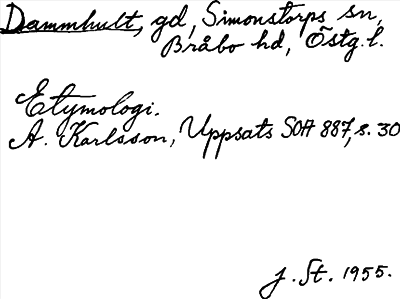 Dammhult, gd, Simonstorps sn,
Bråbo hd, Östg.l.
Etymologi.
A. Karlsson, Uppsats SOA 887, s. 30
J. St. 1955.